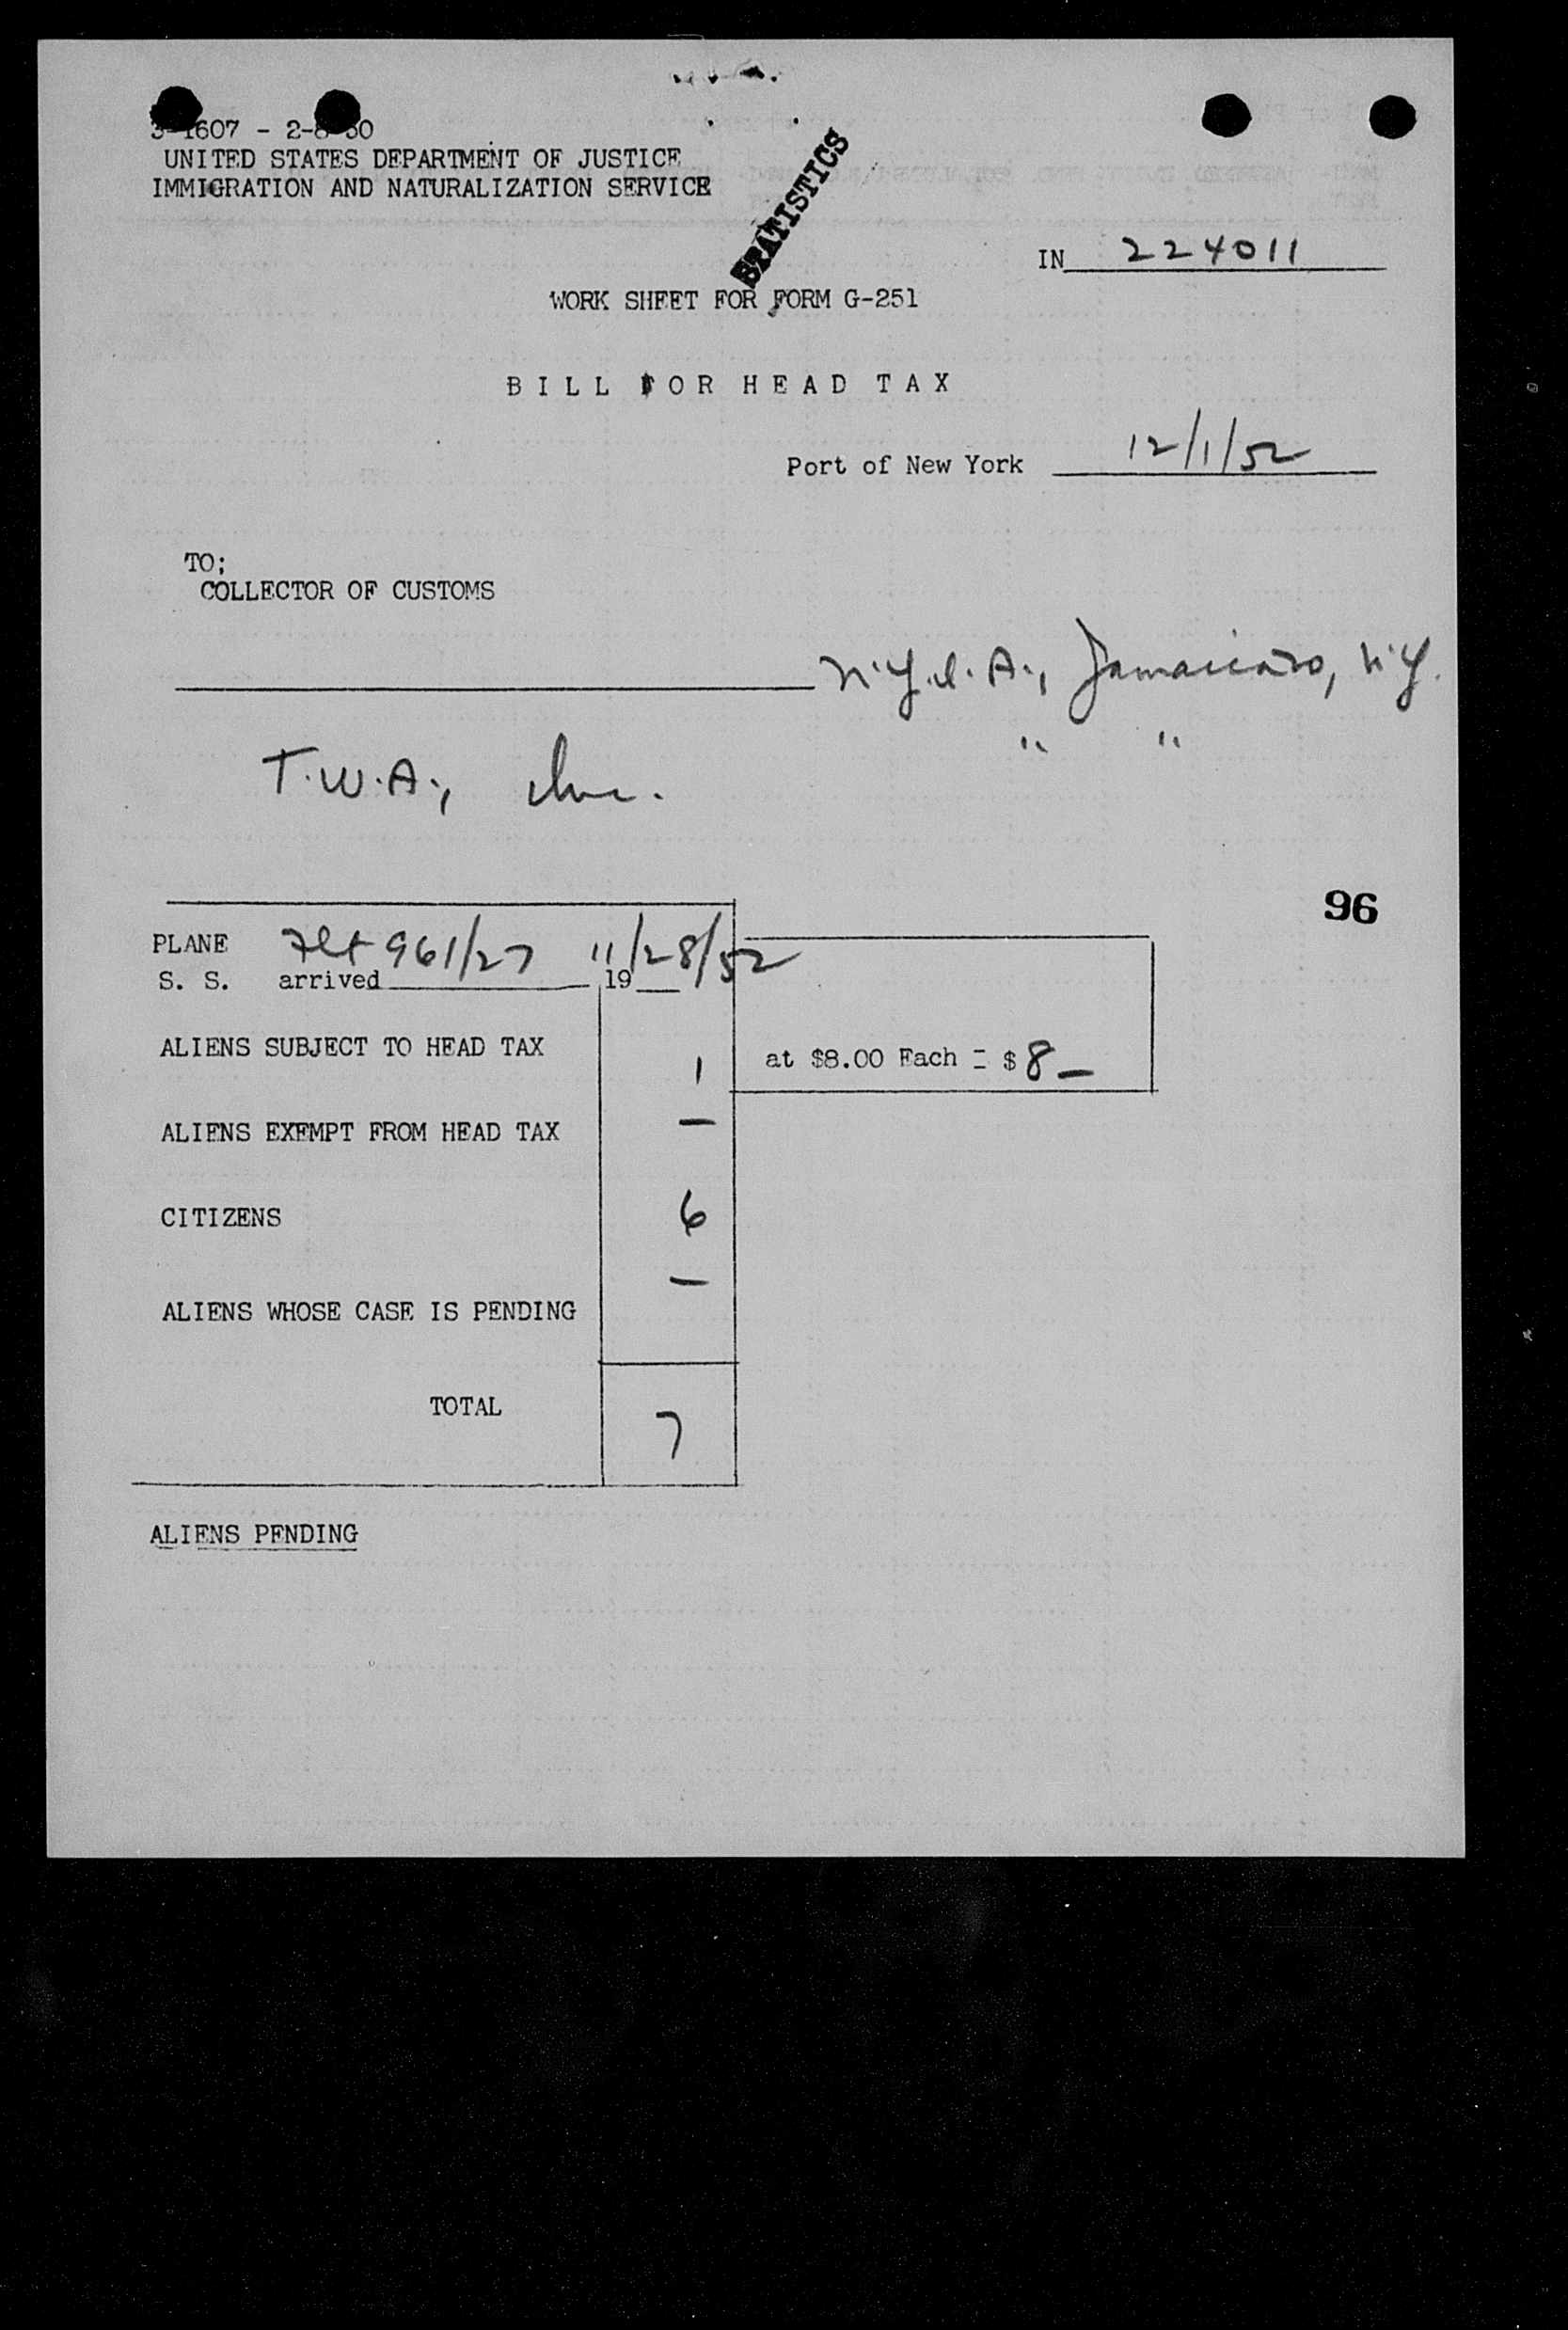 3-1607 - 2-8-50
UNITED STATES DEPARTMENT OF JUSTICE
IMMIGRATION AND NATURALIZATION SERVICE
STATISTICS
IN 224011
WORK SHEET FOR FORM G-251
BILL FOR HEAD TAX
Port of New York 12/1/52
TO;
COLLECTOR OF CUSTOMS
N.Y.I.A., Jamaica 30, N.Y.
" "
T.W.A., Inc.
96
PLANE Flt 961/27 11/28/52
S. S. arrived 19
ALIENS SUBJECT TO HEAD TAX 1 at $8.00 Each = $ 8 —
ALIENS EXEMPT FROM HEAD TAX —
CITIZENS 6
ALIENS WHOSE CASE IS PENDING —
TOTAL 7
ALIENS PENDING